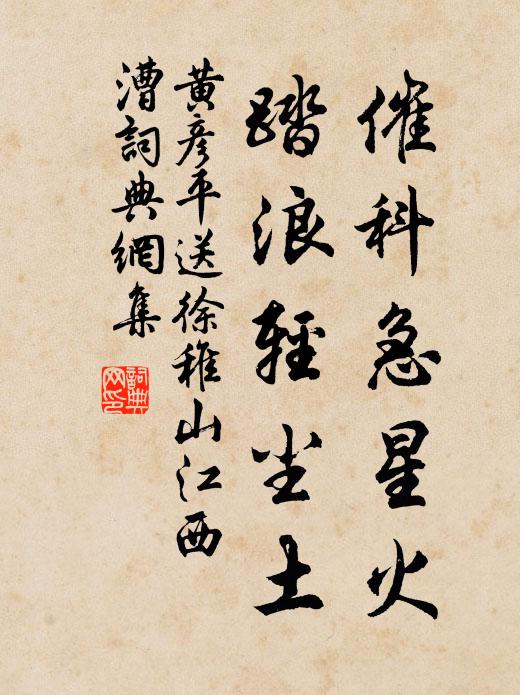 催科急星火
踏浪輕尘土
黃彥平送徐稚山江西
漕詞典網集
詞典
网印